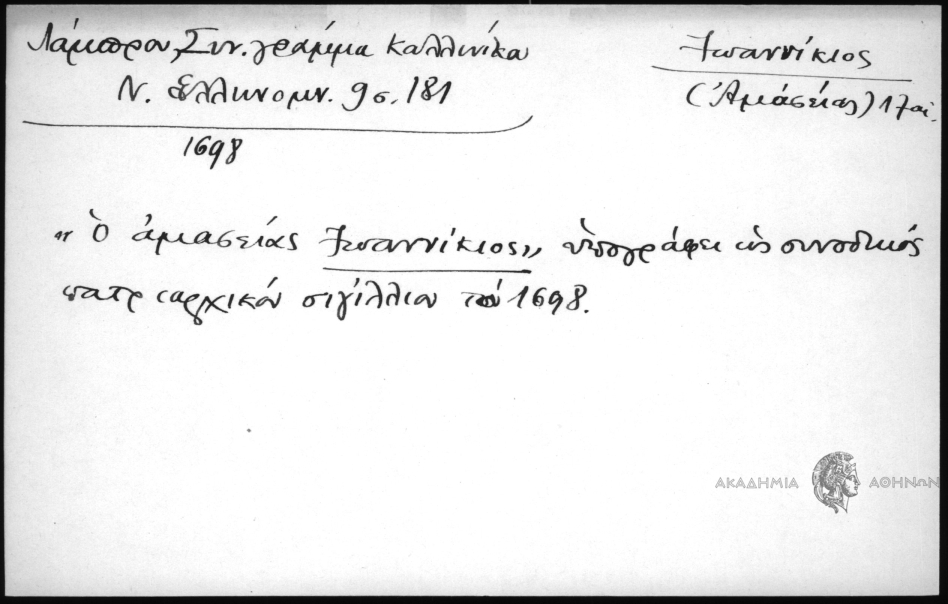 Λάμπρου, Συν. γράμμα Καλλινίκα
Ν. Ελληνομν. 9 σ. 181
1698
Ἰωαννίκιος
(Ἀμασείας) 17 αἰ.
" Ὁ ἀμασείας Ἰωαννίκιος,, ὑπογράφει ὡς συνοδικός
πατριαρχικόν σιγίλλιον τοῦ 1698.
ΑΚΑΔΗΜΙΑ ΑΘΗΝΩΝ